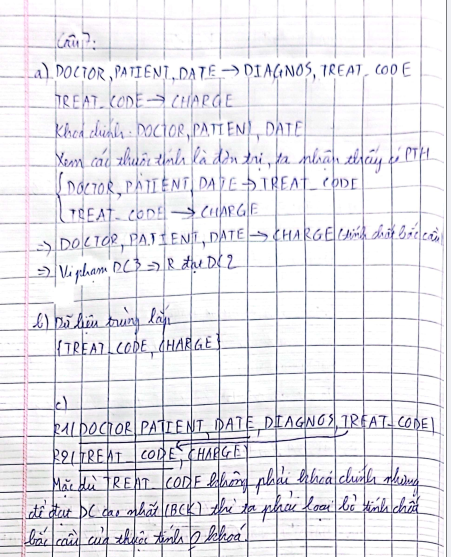 Câu 7:
a) DOCTOR, PATIENT, DATE → DIAGNOS, TREAT_CODE
TREAT_CODE → CHARGE
Khoá chính: DOCTOR, PATIENT, DATE
Xem các thuộc tính là đơn trị, ta nhận thấy có PTH
{ DOCTOR, PATIENT, DATE → TREAT_CODE
TREAT_CODE → CHARGE
⇒ DOCTOR, PATIENT, DATE → CHARGE (tính chất bắc cầu)
⇒ Vi phạm DC3 ⇒ R đạt DC2
b) Dữ liệu trùng lặp
{TREAT_CODE, CHARGE}
c)
R1(DOCTOR, PATIENT, DATE, DIAGNOS, TREAT_CODE)
R2(TREAT_CODE, CHARGE)
Mặc dù TREAT_CODE không phải khoá chính nhưng
để đạt DC cao nhất (BCK) thì ta phải loại bỏ tính chất
bắc cầu của thuộc tính 0 khoá.